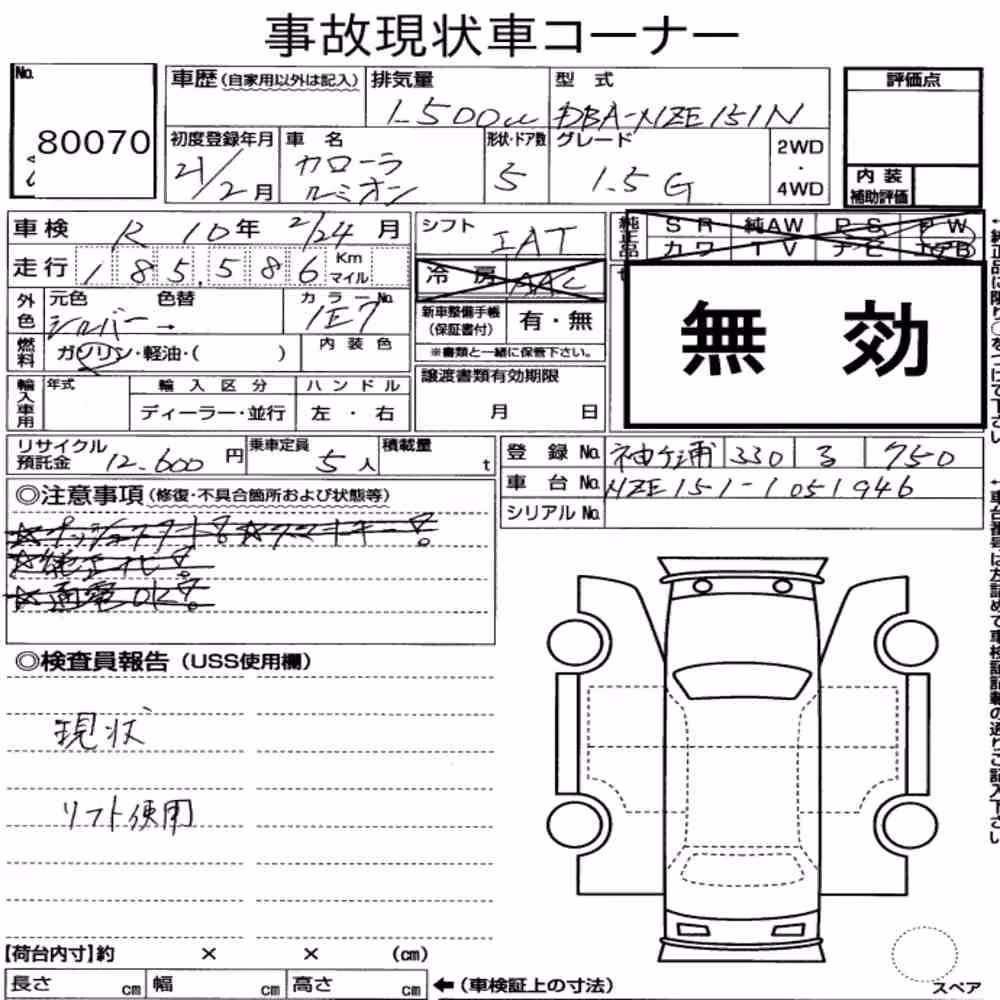 事故現状車コーナー
No. 80070
車歴(自家用以外は記入) 排気量 1500cc 型式 DBA-NZE151N
評価点
初度登録年月 21/2月 車名 カローラルミオン 形状・ドア数 5 グレード 1.5G 2WD・4WD
内装補助評価
車検 R 10年 2/24月 シフト IAT
純正品 SR 純AW PS PW
カワ TV ナビ エアB
走行 185,586 Km マイル 冷房 AAC
外色 元色 シルバー 色替 カラーNo. 1E7
新車整備手帳(保証書付) 有・無
※書類と一緒に保管下さい。
無効
燃料 ガソリン・軽油・( ) 内装色
譲渡書類有効期限
月 日
輸入車用 年式 輸入区分 ハンドル
ディーラー・並行 左・右
リサイクル預託金 12,600円 乗車定員 5人 積載量 t
登録No. 袖ケ浦 330 る 750
車台No. NZE151-1051946
シリアルNo.
◎注意事項(修復・不具合箇所および状態等)
☆プッシュスタート!☆スマートキー!
☆純正ナビ!
☆通電OK!
◎検査員報告(USS使用欄)
現状
リフト使用
【荷台内寸】約 × × (cm)
長さ cm 幅 cm 高さ cm ←(車検証上の寸法)
スペア
↑純正品に限り○をつけて下さい
↑車台番号は左詰めで車検証記載の通りご記入下さい